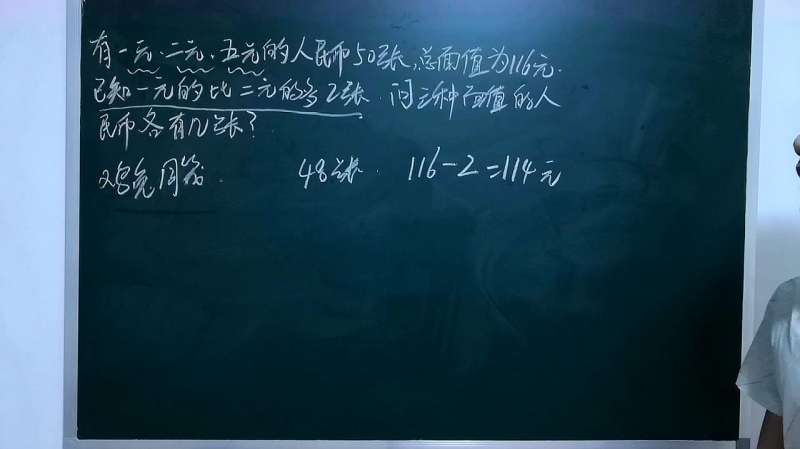 有一元、二元、五元的人民币50张,总面值为116元.
已知一元的比二元的多2张.问三种面值的人
民币各有几张?
鸡兔同笼. 48张. 116-2=114元